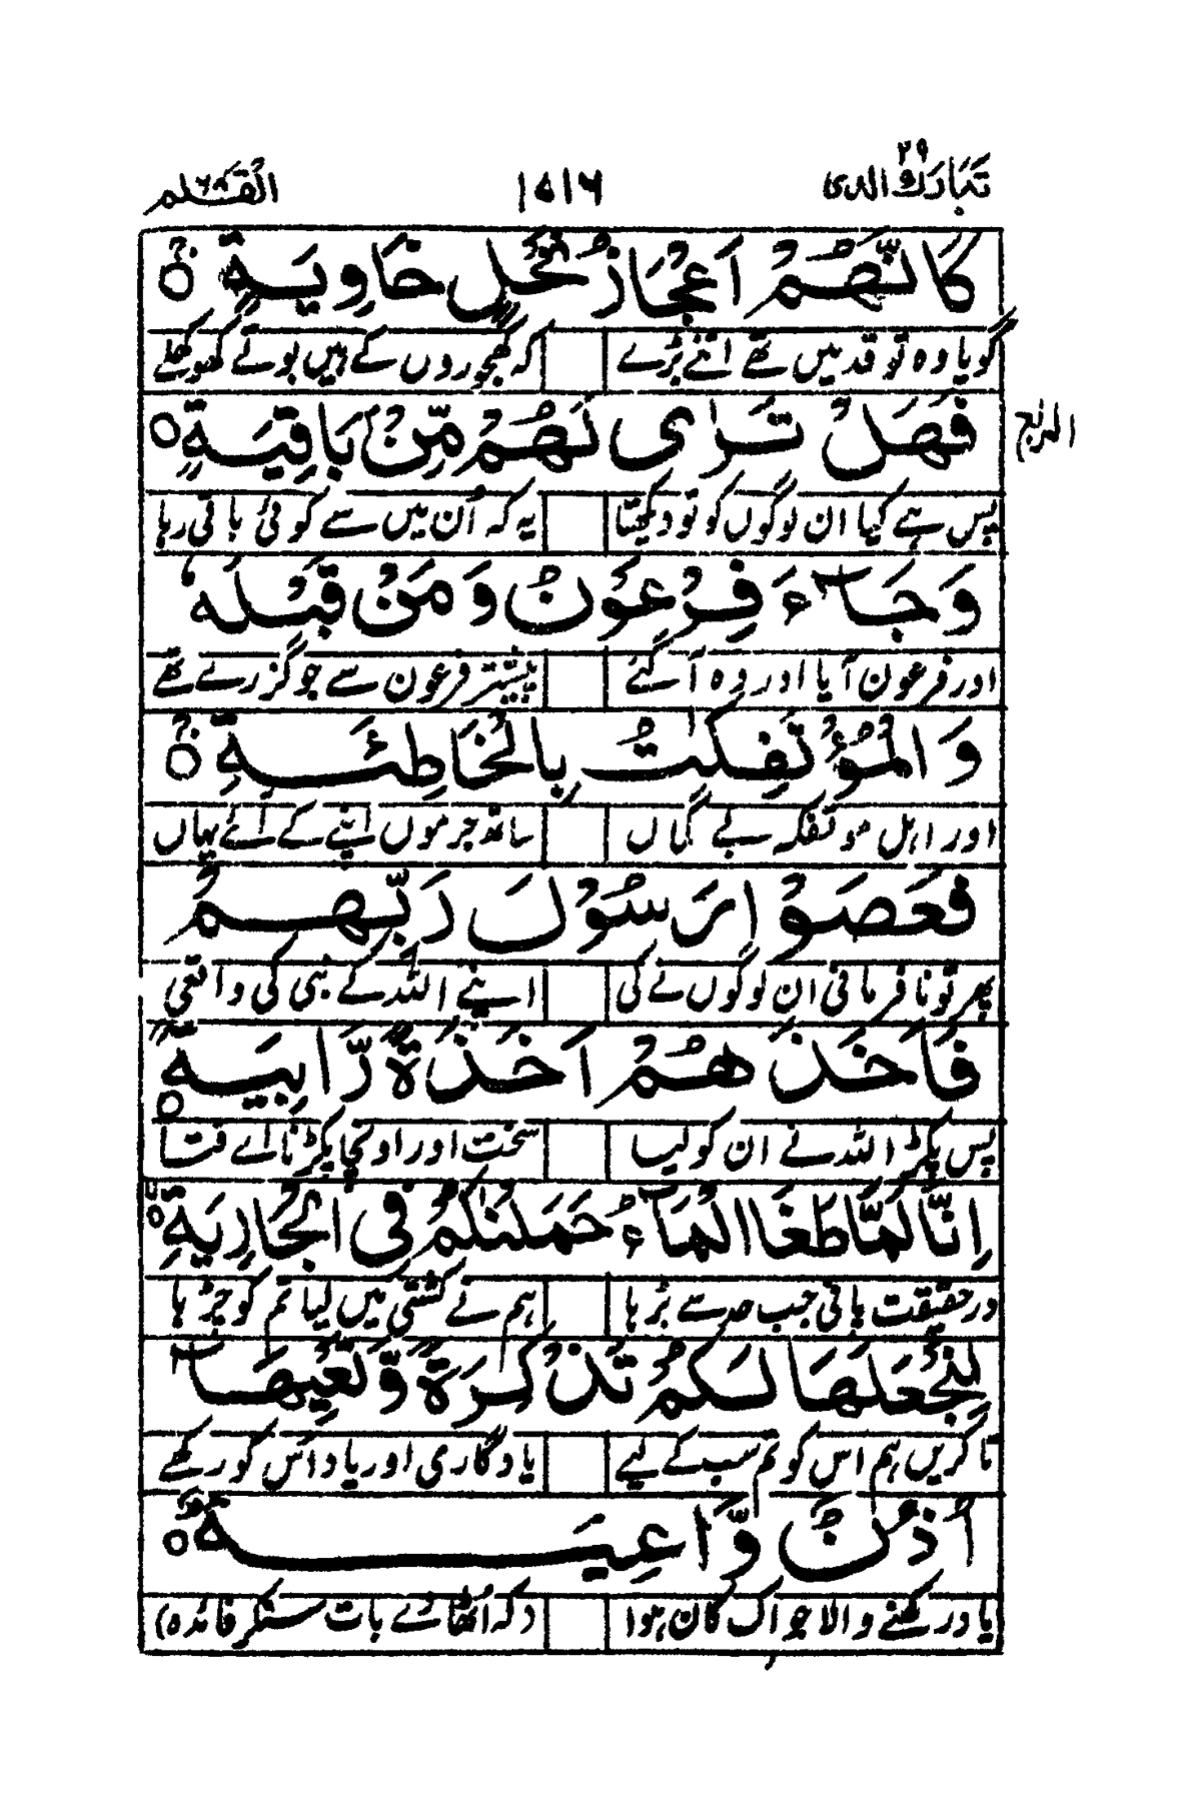 تَبَارَكَ الذی ۲۹ ۱۵۱۶ القلم ۶۸
كَاَنَّهُمْ اَعْجَازُ نَخْلٍ خَاوِيَةٍ ۝
گویا وہ تو قد میں تھے اتنے بڑے کہ کھجوروں کے ہیں بوٹے کھوکھلے
فَهَلْ تَرٰى لَهُمْ مِّنْ بَاقِيَةٍ ۝ الربع
پس ہے کیا ان لوگوں کو تو دیکھتا یہ کہ اُن میں سے کوئی باقی رہا
وَجَآءَ فِرْعَوْنُ وَمَنْ قَبْلَهٗ
اور فرعون آیا اور وہ آگئے پیشتر فرعون سے جو گزرے تھے
وَالْمُؤْتَفِكٰتُ بِالْخَاطِئَةِ ۝
اور اہل موتفکہ بے گماں ساتھ جرموں اپنے کے آئے یہاں
فَعَصَوْا رَسُوْلَ رَبِّهِمْ
پھر تو نافرمانی ان لوگوں نے کی اپنے اللہ کے نبی کی واقعی
فَاَخَذَهُمْ اَخْذَةً رَّابِيَةً ۝
پس پکڑ اللہ نے ان کو لیا سخت اور اونچا پکڑنا اے فتا
اِنَّا لَمَّا طَغَا الْمَآءُ حَمَلْنٰكُمْ فِى الْجَارِيَةِ ۝
درحقیقت پانی جب حد سے بڑہا ہم نے کشتی میں لیا تم کو چڑہا
لِنَجْعَلَهَا لَكُمْ تَذْكِرَةً وَّتَعِيَهَآ
تا کریں ہم اس کو تم سب کے لیے یادگاری اور یاد اُس کو رکھے
اُذُنٌ وَّاعِيَةٌ ۝
یاد رکھنے والا جو اک کان ہوا (کہ اُٹھائے بات سنکر فائدہ)